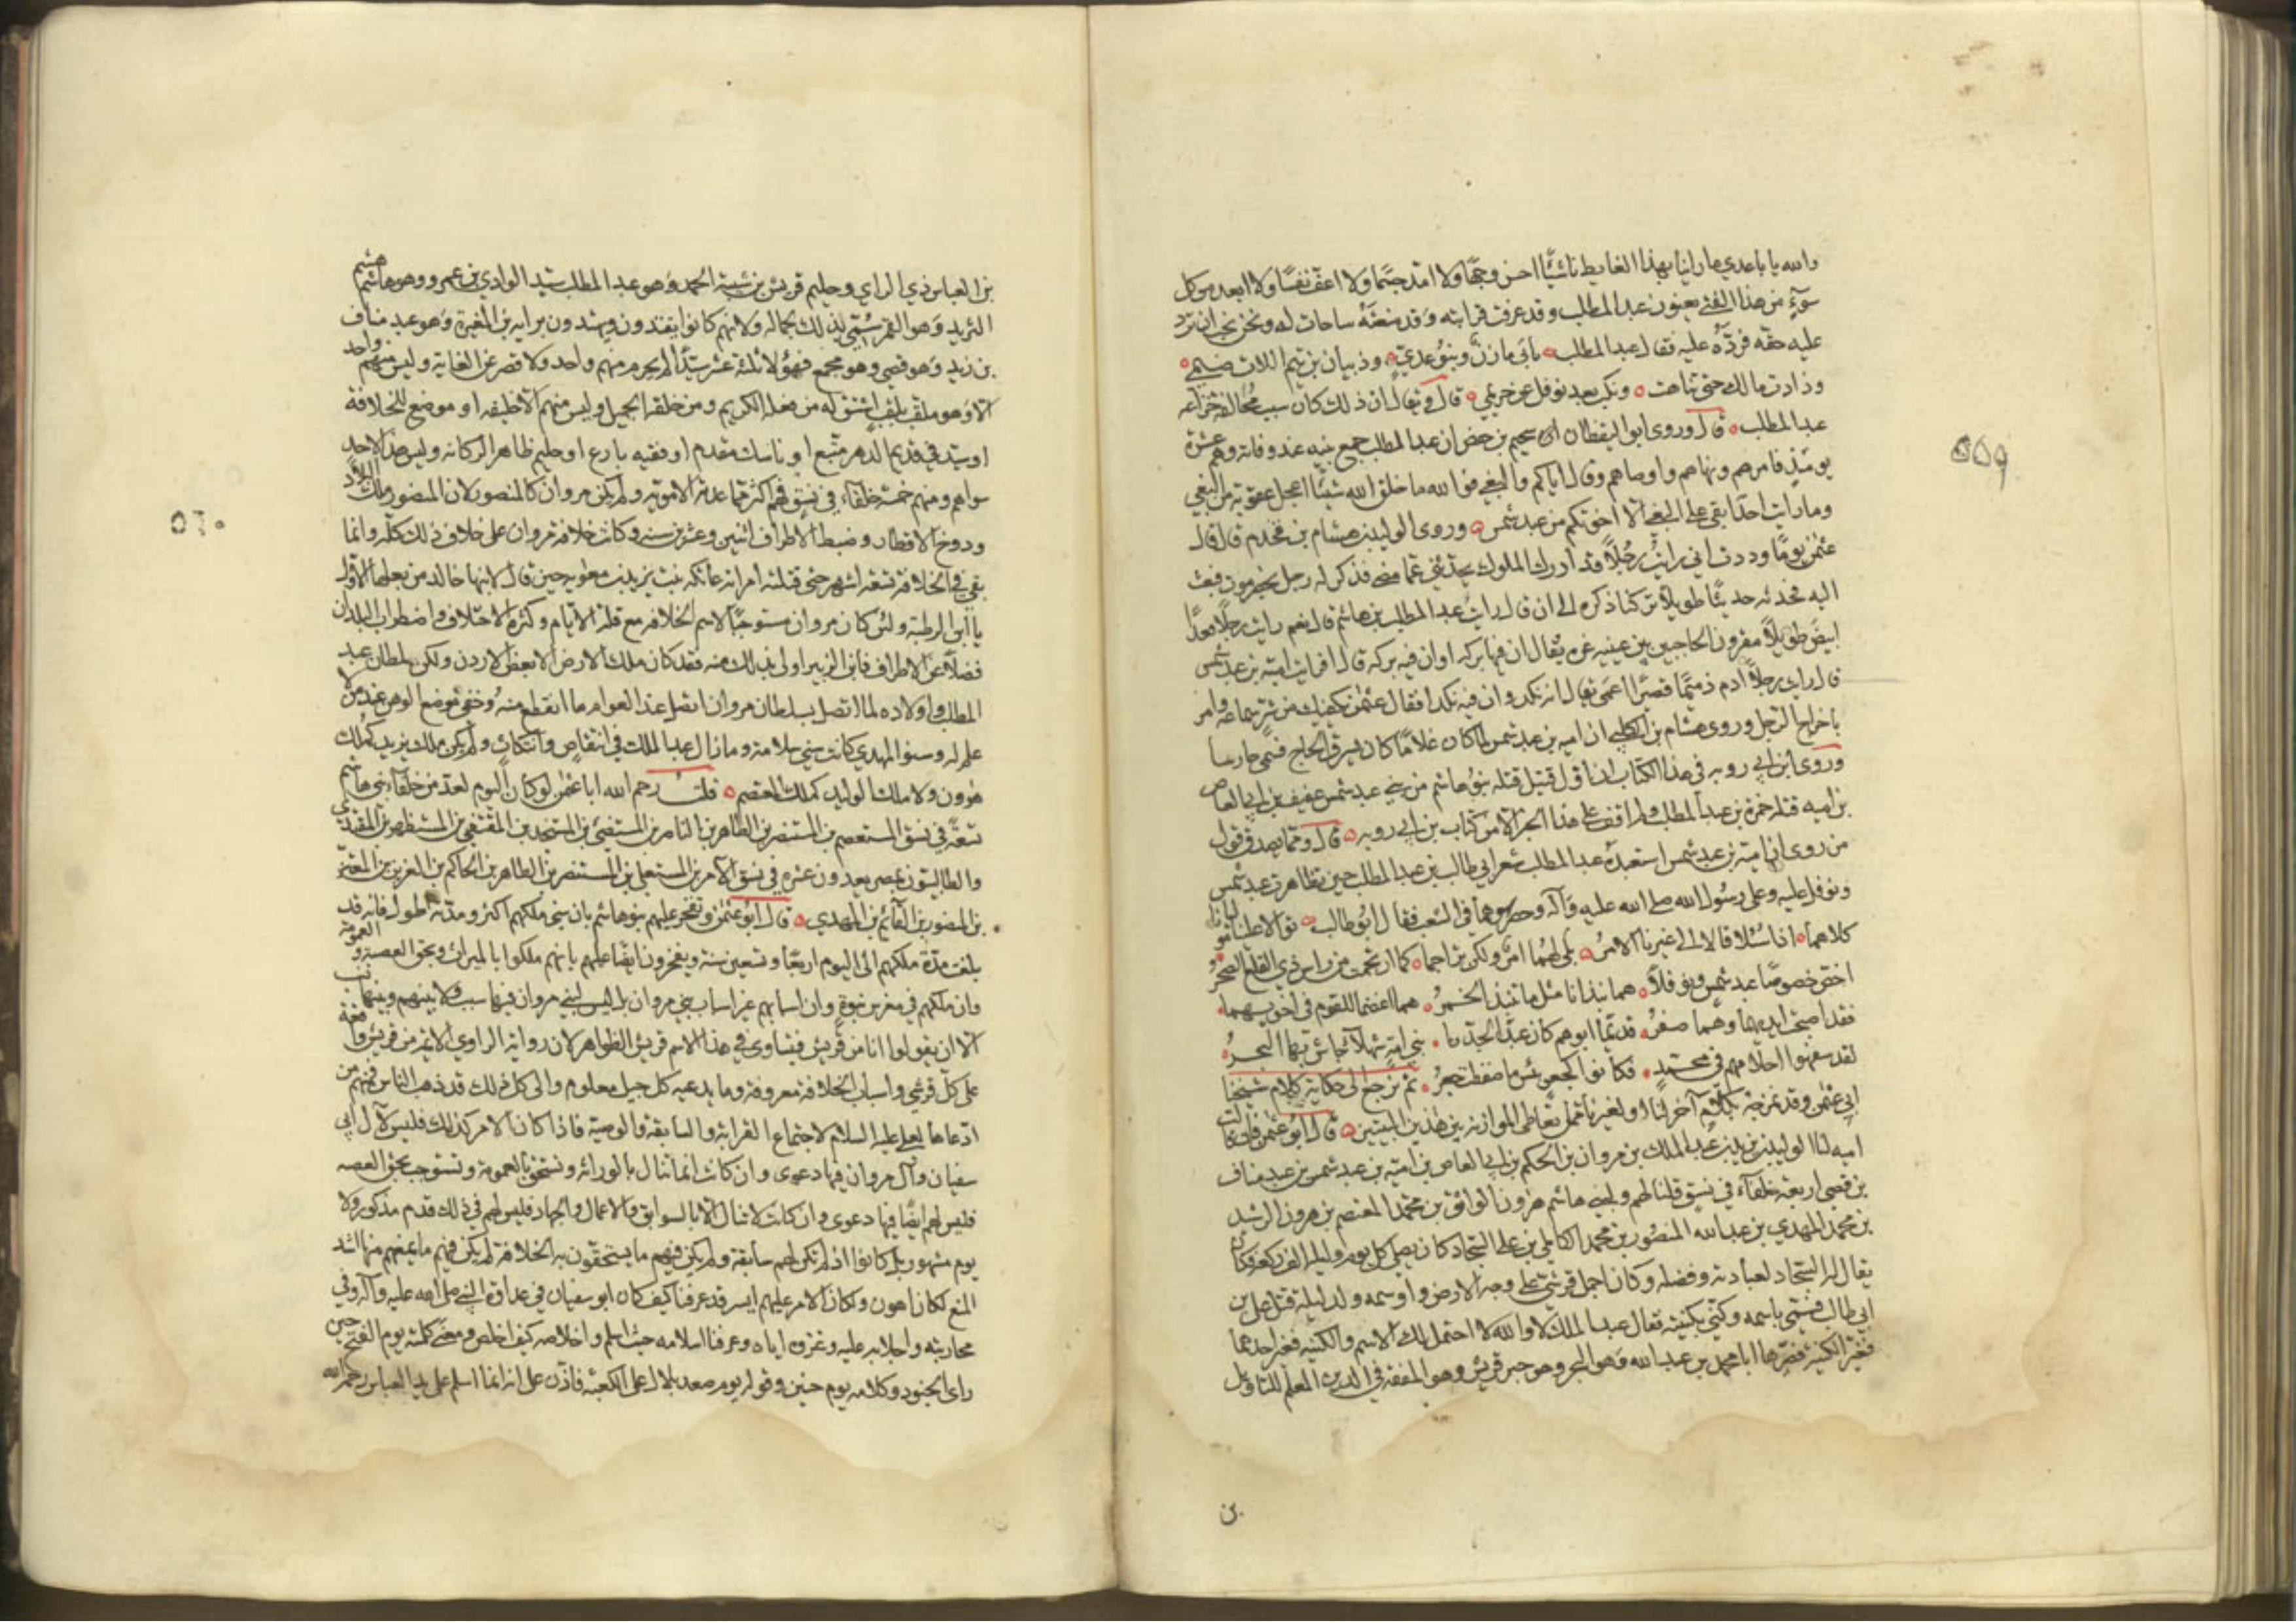 والله يا باعدي ما راينا بهذا الغايط ناشئًا احسن وجهًا ولا امد جسمًا ولا اعف نفسًا ولا ابعد من كل
سوءٍ من هذا الفتى يعنون عبد المطلب وقد عرفت قرابته وقد منعته ساحات له ونحن نحب ان ترد
عليه حقه فردّه عليه فقال عبد المطلب ٥ يابى مازن وبنو عدي ٥ وذبيان بن تيم اللات ضيمي ٥
وزادت مالك حتى تناهت ٥ ونكب بعد نوفل عن حريمي ٥ قال ويقال ان ذلك كان سبب مخالفة خزاعة
عبد المطلب ٥ قال وروى ابو اليقظان ان سحيم بن حفص ان عبد المطلب جمع بنيه عند وفاته وهم عشرة
يومئذ فامرهم ونهاهم واوصاهم وقال اياكم والبغي فوالله ما خلق الله شيئًا اعجل عقوبة من البغي
وما رايت احدًا بقي على البغي الا اخوتكم من عبد شمس ٥ وروى الوليد بن هشام بن قحذم قال قال
عثمن يومًا وددت اني رايت رجلًا قد ادرك الملوك يحدثني عما مضى فذكر له رجل بحضرموت فبعث
اليه فحدثه حديثًا طويلًا تركنا ذكره الى ان قال رايت عبد المطلب بن هاشم قال نعم رايت رجلًا قعدًا
ابيض طويلًا مقرون الحاجبين بين عينيه غرة يقال ان فيها بركة او ان فيه بركة قال افرايت امية بن عبد شمس
قال رايت رجلًا آدم ذميمًا قصيرًا اعمى يقال انه نكد وان فيه نكدا فقال عثمن يكفيك من شر سماعه وامر
باخراج الرجل وروى هشام بن الكلبي ان امية بن عبد شمس لما كان غلامًا كان يسرق الحاج فسمي حارسا
وروى ابن ابي روبه في هذا الكتاب ان اول قتيل قتله بنو هاشم من بني عبد شمس عفيف بن ابي العاص
بن امية قتله حمزة بن عبد المطلب ولم اقف على هذا الخبر الا من كتاب بن ابي روبه ٥ قال ومما يصدق قول
من روى ان امية بن عبد شمس استعبده عبد المطلب شعر ابي طالب بن عبد المطلب حين تظاهرت عبد شمس
ونوفل عليه وعلى رسول الله صلى الله عليه وآله وحصروهما في الشعب فقال ابو طالب ٥ توالا علينا موليانا
كلاهما ٥ اذا سئلا قالا الى غيرنا الامر ٥ بلى لهما امر ولكن تراجما ٥ كما ارتجمت من راس ذي القلع الصخر
اخص خصوصًا عبد شمس ونوفلًا ٥ هما نبذانا مثل ما تنبذ الخمر ٥ هما اغمضا للقوم في اخويهما
فقد اصبحت ايديهما وهما صفر ٥ قديمًا ابوهم كان عبدًا لجدنا ٥ بني امة شهلاء جاش بها البحر ٥
لقد سفهوا احلامهم في محمد ٥ فكانوا كجعر بئس ما ضفطت جعر ٥ ثم نرجع الى حكاية كلام شيخنا
ابي عثمن وقد نمزجه بكلام آخر لنا او لغيرنا ممن تعاطى الموازنه بين هذين البيتين ٥ قال ابو عثمن فان قالت
امية لنا الوليد بن يزيد بن عبد الملك بن مروان بن الحكم بن ابي العاص بن امية بن عبد شمس بن عبد مناف
بن قصي اربعة خلفاء في نسق قلنا لهم ولبني هاشم هرون الواثق بن محمد المعتصم بن هرون الرشيد
بن محمد المهدي بن عبد الله المنصور بن محمد الكامل بن علي السجاد كان يصلي كل يوم وليلة الف ركعة فكان
يقال له السجاد لعبادته وفضله وكان اجمل قرشي على وجه الارض واوسمه ولد ليلة قتل علي بن
ابي طالب فسمي باسمه وكني بكنيته فقال عبد الملك لا والله لا احتمل لك الاسم والكنية فغير احدهما
فغير الكنية فصيرها ابا محمد بن عبد الله وهو البحر وهو حبر قريش وهو المفقه في الدين المعلم للتاويل
بن
بن العباس ذي الراي وحليم قريش بن شيبة الحمد وهو عبد المطلب سيد الوادي بن عمرو وهو هاشم هشم
الثريد وهو القمر سمي لذلك بجماله ولانهم كانوا يقتدون ويهتدون برايه بن المغيرة وهو عبد مناف
بن زيد وهو قصي وهو مجمع فهؤلاء ثلثة عشر سيدًا لم يحرم منهم واحد ولا قصر عن الغاية وليس منهم واحد
الا وهو ملقب بلقب اشتق له من فعله الكريم ومن خلقه الجميل وليس منهم الا خليفه او موضع للخلافة
او سيد في قديم الدهر متبع او ناسك مقدم او فقيه بارع او حليم ظاهر الركانه وليس هذا لاحد
سواهم ومنهم خمسة خلفاء في نسق فهم اكثر مما عدته الاموية ولم يكن مروان كالمنصور لان المنصور ملك البلاد
ودوخ الاقطار وضبط الاطراف اثنين وعشرين سنه وكانت خلافة مروان على خلاف ذلك كله وانما
بقي في الخلافة تسعة اشهر حتى قتلته امراته عاتكه بنت يزيد بن معوية حين قال لابنها خالد من بعلها الاول
يا ابن الرطبة ولئن كان مروان مستوجبًا لاسم الخلافه مع قلة الايام وكثرة الاختلاف واضطراب البلدان
فضلًا عن الاطراف فابن الزبير اولى بذلك منه فقد كان ملك الارض الا بعض الاردن ولكن سلطان عبد
الملك واولاده لما اتصل بسلطان مروان اتصل عند العوام ما انقطع منه وخفي موضع الوهن عند من لا
علم له وسنو المهدي كانت سني سلامة وما زال عبد الملك في انتقاص وانتكاث ولم يكن ملك يزيد كملك
هرون ولا ملك الوليد كملك المعتصم ٥ قلت رحم الله ابا عثمن لو كان اليوم لعد من خلفاء بني هاشم
تسعة في نسق المستعصم بن المستنصر بن الطاهر بن الناصر بن المستضي بن المستنجد بن المقتفي بن المستظهر بن المقتدي
والطالبيون بمصر يعدون عشرة في نسق الآمر بن المستعلي بن المستنصر بن الطاهر بن الحاكم بن العزيز بن المعتز
بن المنصور بن القائم بن المهدي ٥ قال ابو عثمن وتفخر عليهم بنو هاشم بان سني ملكهم اكثر ومدته اطول فانه قد
بلغت مدة ملكهم الى اليوم اربعًا وتسعين سنة ويفخرون ايضًا عليهم بانهم ملكوا بالميراث وبحق العصبه والعمومة
وان ملكهم في مغرس نبوة وان اسبابهم غير اسباب بني مروان بل ليس لبني مروان فيها سبب ولا بينهم وبينها نسب
الا ان يقولوا انا من قريش فيتساوى في هذا الاسم قريش الظواهر لان رواية الراوي الائمة من قريش واقعة
على كل قرشي واسباب الخلافة معروفة وما يدعيه كل جيل معلوم والى كل ذلك قد ذهب الناس فمنهم من
ادعاها لعلي عليه السلام لاجتماع القرابة والسابقة والوصية فاذا كان الامر كذلك فليس لآل ابي
سفيان وآل مروان فيها دعوى وان كانت انما تنال بالوراثة وتستحق بالعمومة وتستوجب بحق العصبه
فليس لهم ايضًا فيها دعوى وان كانت لا تنال الا بالسوابق والاعمال والجهاد فليس لهم في ذلك قدم مذكور ولا
يوم مشهور بل كانوا اذ لم تكن لهم سابقة ولم يكن فيهم ما يستحقون به الخلافة لم يكن فيهم ما يمنعهم منها اشد
المنع لكان اهون ولكان الامر عليهم ايسر قد عرفنا كيف كان ابو سفيان في عداوة النبي صلى الله عليه وآله وفي
محاربته واجلابه عليه وغزوه اياه وعرفنا اسلامه حيث اسلم واخلاصه كيف اخلص ومعنى كلمته يوم الفتح حين
راى الجنود وكلامه يوم حنين وقوله يوم صعد بلال على الكعبة فاذن على انه انما اسلم على يد العباس رحمه الله
٥٥٩
٥٦٠